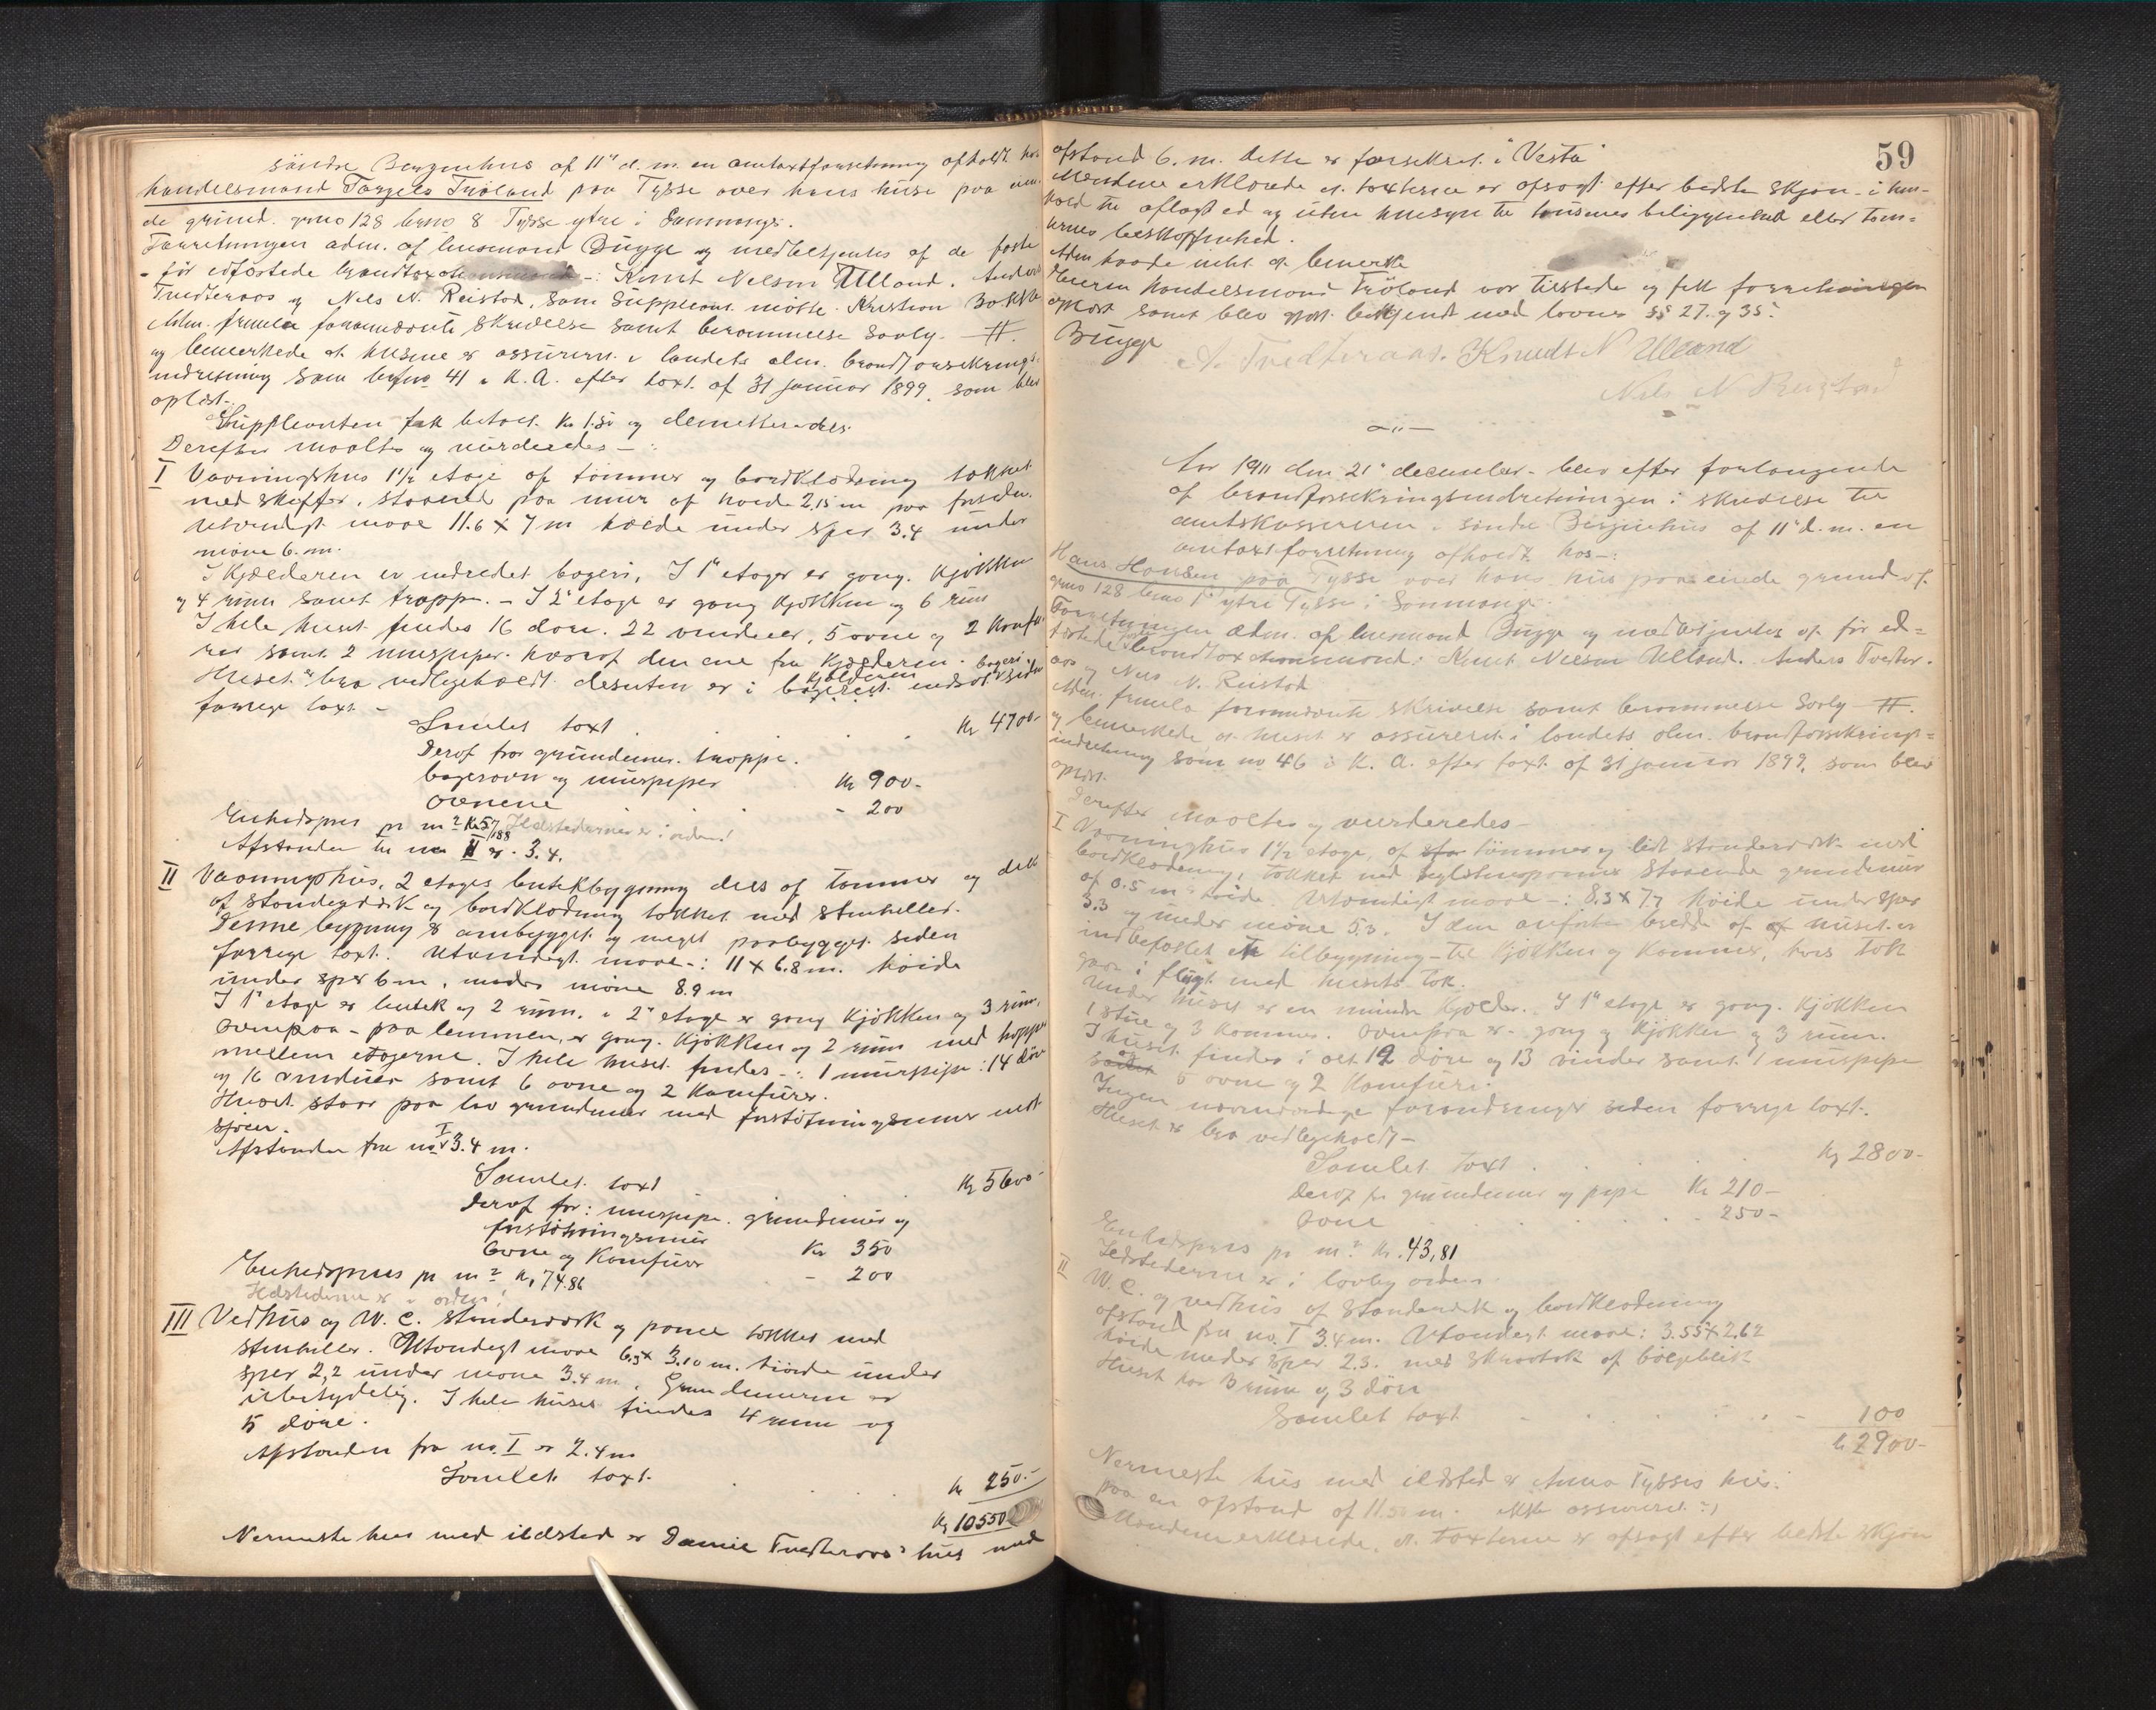 søndre Bergenhus af 11' d. m. en omtaxtforretning afholdt hos
handelsmand Torgels Trøland paa Tysse over hans huse paa eien-
de grund. grno 128 brno 8 Tysse ytre i Sammanger.
Forretningen adm. af lensmand Bügge og medbetjentes af de faste
- før edfæstede brandtaxationsmænd -: Knut Nelsen Ulland. Anders
Tvedteraas og Nels N. Reistad, som Suppleant møtte Kristian Bakke
Adm. fremla foranævnte skrivelse samt berammelse Lovlig. #.
og bemerkede at husene er assureret i landets alm. brandforsikrings-
indretning som bygno 41 i K. A. efter taxt. af 31 januar 1899, som blev
oplæst.
Suppleanten fik betalt Kr 1.50 og demitteredes.
Derefter maaltes og vurderedes - :
I Vaaningshus 1 1/2 etage af tømmer og bordklædning tækket
med skiffer, staaende paa mur af høide 2.15 m paa forsiden.
Utvendigt maal 11.6 X 7 m høide under sper 3.4 under
møne 6. m.
I Kjælderen er indredet bageri, I 1' etage er gang. kjøkken
og 4 rum samt trappe. - I 2' etage er gang kjøkken og 6 rum
I hele huset findes 16 døre. 22 vinduer, 5 ovne og 2 komfu-
rer samt 2 murpiper. hvoraf den ene fra Kjælderen.
Huset er bra vedligeholdt. desuten er i kjælderen bageri indsat siden
forrige taxt. -
Samlet taxt . . . Kr 4700-
Deraf for grundmur. trappe.
bagerovn og murpiper Kr 900-
ovnene - 200
Enhedspris pr m² Kr 57/188 Ildstederne er i orden!
Afstanden til no II er. 3.4.
II Vaaningshus, 2 etages butikbygning dels af tømmer og dels
af stenderverk og bordklædning tækket med stenheller.
Denne bygning er ombygget og meget paabygget siden
forrige taxt. Utvendigt maal -: 11 X 6.8 m. høide
under sper 6 m, under møne 8.9 m
I 1' etage er butik og 2 rum. i 2' etage er gang kjøkken og 3 rum,
ovenpaa - paa lemmen, er gang. kjøkken og 2 rum med trappe
mellem etagerne. I hele huset findes -: 1 murpipe : 14 døre
og 16 vinduer samt 6 ovne og 2 Komfurer.
Huset staar paa lav grundmur med forstøtningsmur mot
sjøen.
Afstanden fra no I 3.4 m.
Samlet taxt Kr 5600-
Deraf for: murpipe. grundmur og
forstøtningsmur Kr 350
Ovne og Komfurer - 200
Enhedspris pr m² Kr, 74.86
Ildstederne er i orden!
III Vedhus og W. C. stenderverk og panel tækket med
stenheller. Utvendigt maal 6.5 X 3.10 m. høide under
sper 2,2 under møne 3.4 m. Grundmuren er
ubetydelig. I hele huset findes 4 rum og
5 døre.
Afstanden fra no. I er 2.4 m
Samlet taxt. Kr 250.-
Kr 10550
Nermeste hus med ildsted er Daniel Tvedteraas' hus med
59
afstand 6. m. dette er forsikret i Vesta
Mændene erklærede at taxterne er afsagt efter bedste skjøn i hen-
hold til aflagt ed og uten hensyn til husenes beliggenhed eller tom-
ternes beskaffenhed.
Adm havde intet at bemerke
Eieren handelsmand Trøland var tilstede og fik forretningen
oplæst samt blev gjort bekjendt med lovens §§ 27. og 35.
Bügge
A. Tvedteraas. Knudt N Ulland
Nils N Reistad
-"-
Aar 1911 den 21' december - blev efter forlangende
af brandforsikringsindretningen i skrivelse til
amtskassereren i søndre Bergenhus af 11' d. m. en
omtaxtforretning afholdt hos -:
Hans Hansen paa Tysse over hans hus paa eiende grund af
grno 128 brno 1' ytre Tysse i Sammanger.
Forretningen adm. af lensmand Bügge og medbetjentes af før ed-
fæstede faste brandtaxationsmænd: Knut Nelsen Ulland. Anders Tvedter-
aas og Nels N. Reistad
Adm. fremla foranævnte skrivelse samt berammelse Lovlig #.
og bemerkede at huset er assureret i landets alm. brandforsikrings-
indretning som no 46 i K. A. efter taxt. af 31 januar 1899, som blev
oplæst.
Derefter maaltes og vurderedes -
I Vaaningshus 1 1/2 etage, af tømmer og lidt stenderverk med
bordklædning, tækket med teglstenspanner staaende grundmur
af 0.5 m høide. Utvendigt maal -: 8.3 X 7.7 høide under sper
3.3 og under møne 5.3. I den anførte bredde af huset er
indbefattet en tilbygning - til kjøkken og kammer, hvis tak
gaar i flugt med husets tak.
Under huset er en mindre kjælder. I 1' etage er gang. kjøkken
1 stue og 3 kammer. ovenpaa er - gang og kjøkken og 3 rum.
I huset findes i alt 12 døre og 13 vinduer samt 1 murpipe
og 5 ovne og 2 Komfurer.
Ingen nævneværdige forandringer siden forrige taxt.
Huset er bra vedligeholdt -
Samlet taxt . . . . Kr 2800-
Deraf for grundmur og pipe Kr 210-
ovne . . . . 250-
Enhedspris pr m² Kr. 43,81
Ildstederne er i lovlig orden.
II W. C. og vedhus af stenderverk og bordklædning
afstand fra no. I 3.4 m. Utvendigt maal: 3.55 X 2.62
høide under sper 2.3. med skraatak af bølgeblik
Huset har 3 rum og 3 døre
Samlet taxt . . . . 100
Kr 2900-
Nermeste hus med ildsted er Anna Tysses hus.
paa en afstand af 11.50 m. ikke assureret
Mændene erklærede. at taxterne er afsagt efter bedste skjøn